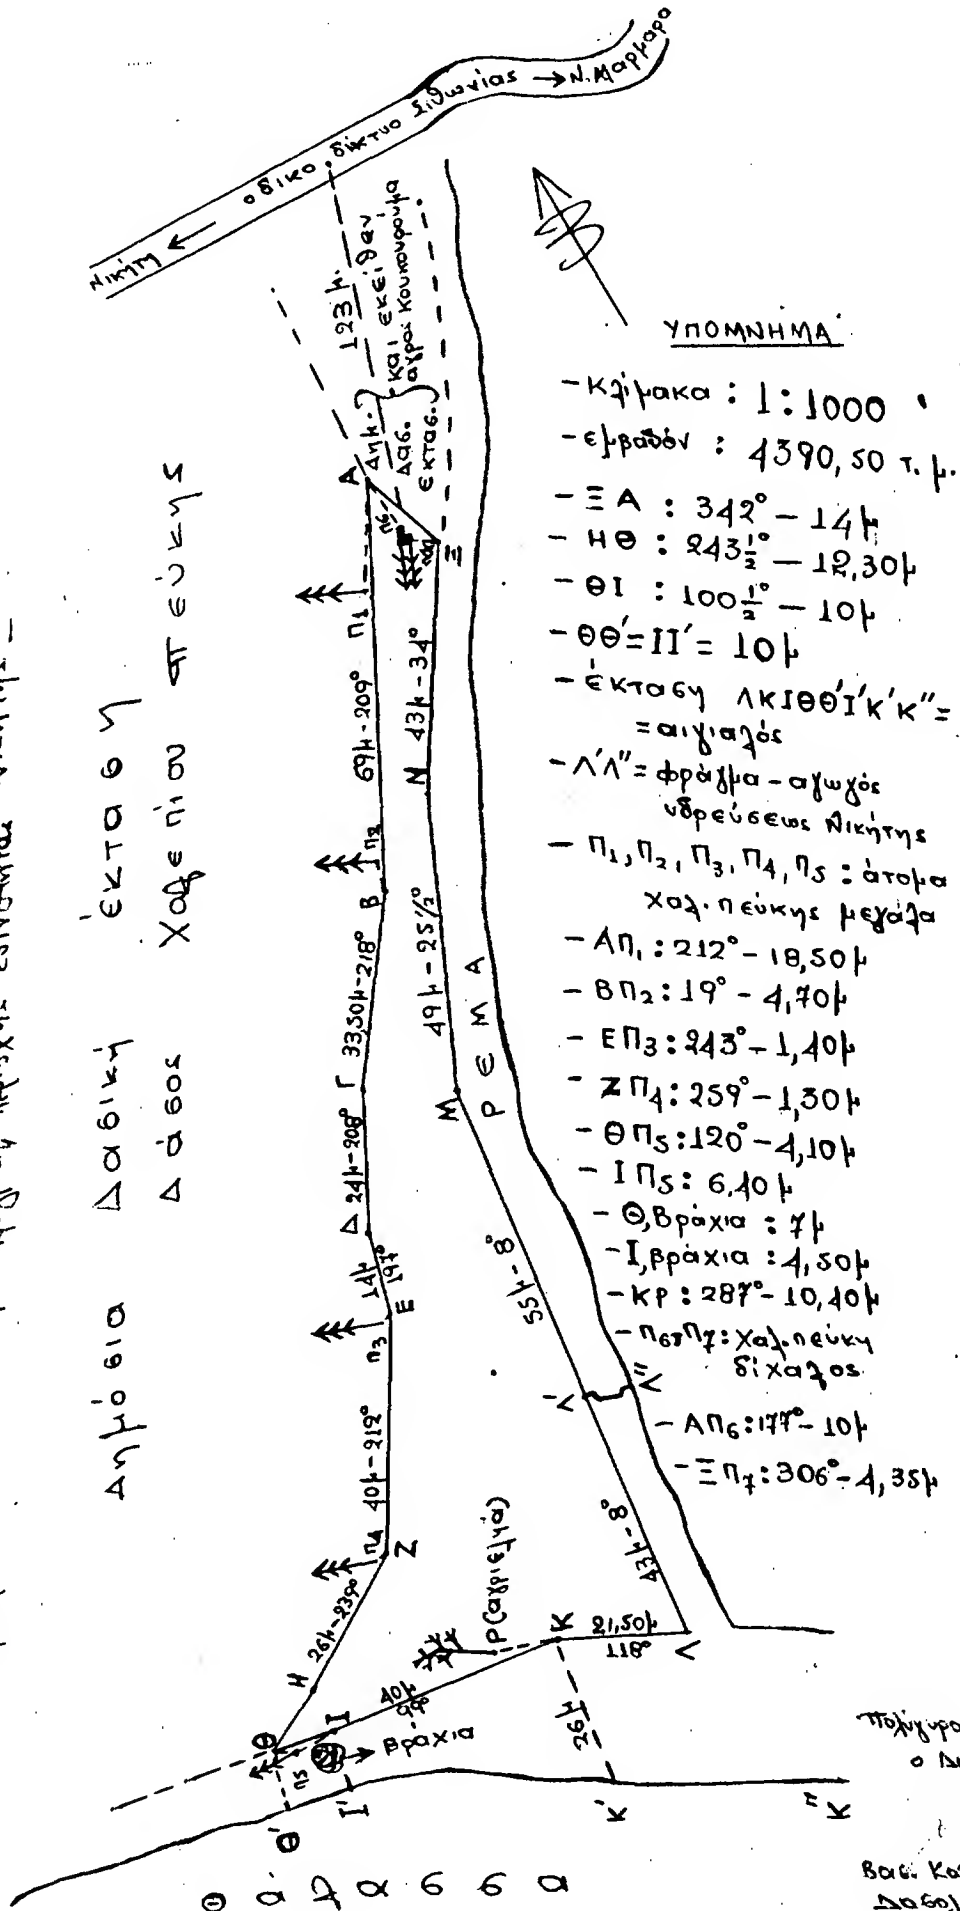 Νικήτη ←
οδικο. δίκτυο Σιθωνίας → Ν. Μαρμαρα
123 μ.
Δημ.
Δασ.
έκτασ.
και εκείθεν
αγροί Κουκουρούμα
Δημόσια Δασική έκταση
Δάσος Χαλεπίου πεύκης
Α
Ξ
Π6
Π7
Π1
69μ-209°
43μ-34°
Ν
Π2
Β
33,50μ-218°
49μ-25½°
Γ
Μ
24μ-208°
Δ
14μ
197°
Ε
Π3
ΡΕΜΑ
55μ-8°
40μ-212°
Λ'
Λ''
Π4
Ζ
26μ-239°
43μ-8°
Η
Ρ(αγριελιά)
Κ
21,50μ
118°
Λ
40μ
-99°
Θ
Ι
Π5
Βράχια
26μ
Θ'
Ι'
Κ'
Κ''
Θάλασσα
ΥΠΟΜΝΗΜΑ
- Κλίμακα : 1:1000
- εμβαδόν : 4390,50 τ.μ.
- ΞΑ : 342° - 14μ
- ΗΘ : 243½° - 12,30μ
- ΘΙ : 100½° - 10μ
- ΘΘ'=ΙΙ' = 10μ
- έκταση ΛΚΙΘΘ'Ι'Κ'Κ''=
=αιγιαλός
- Λ'Λ''= φράγμα - αγωγός
υδρεύσεως Νικήτης
- Π1, Π2, Π3, Π4, Π5 : άτομα
χαλ. πεύκης μεγάλα
- ΑΠ1 : 212° - 18,50μ
- ΒΠ2 : 19° - 4,70μ
- ΕΠ3 : 243° - 1,40μ
- ΖΠ4 : 259° - 1,30μ
- ΘΠ5 : 120° - 4,10μ
- ΙΠ5 : 6,40μ
- Θ, Βράχια : 7μ
- Ι, βράχια : 4,50μ
- ΚΡ : 287° - 10,40μ
- Π6, Π7 : χαλ. πεύκη
δίχαλος
- ΑΠ6 : 177° - 10μ
- ΞΠ7 : 306° - 4,35μ
Πολύγυρο
ο Δ
Βασ. Κο
Δασολ